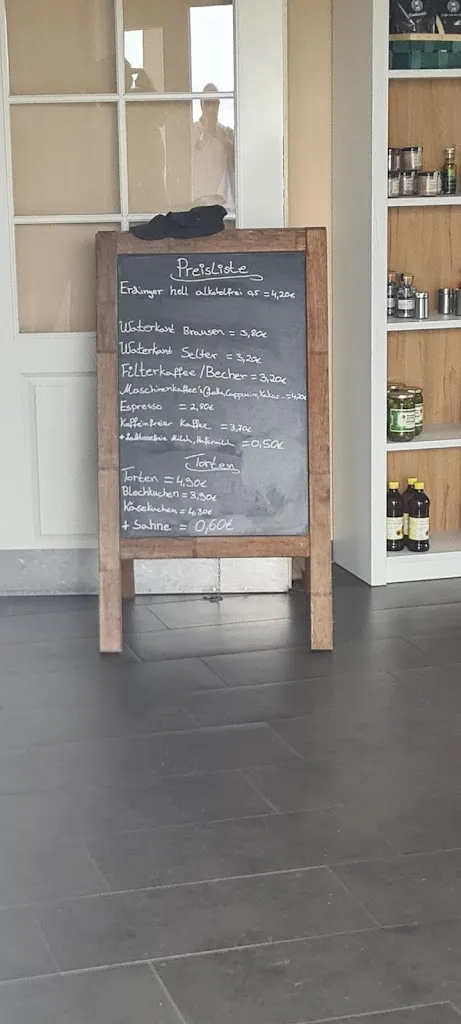 Preisliste
Erdinger hell alkoholfrei 0,5 = 4,20€
Waterkant Brausen = 3,80€
Waterkant Selter = 3,20€
Filterkaffee/Becher = 3,20€
Maschinenkaffee's (Latte, Cappuccino, Kakao... = 4,20€
Espresso = 2,80€
Koffeinfreier Kaffee = 3,70€
+ Laktosefreie Milch, Hafermilch = 0,50€
Torten
Torten = 4,90€
Blechkuchen = 3,90€
Käsekuchen = 4,30€
+ Sahne = 0,60€